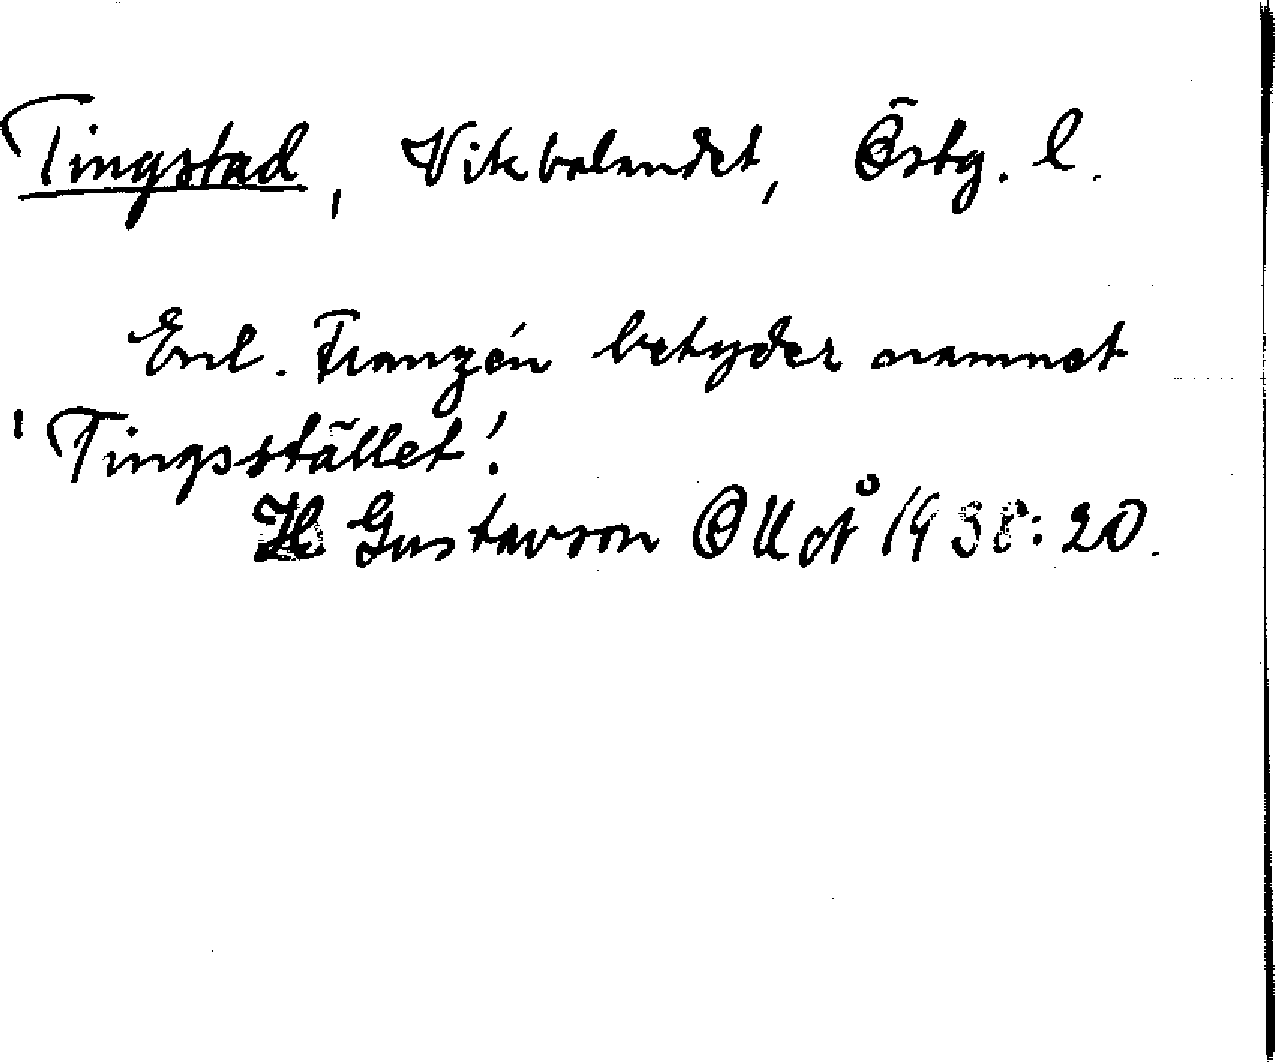 Tingstad, Vikbolandet, Östg. l.
Enl. Franzén betyder namnet
'Tingsstället'.
H Gustavson 1938:20.